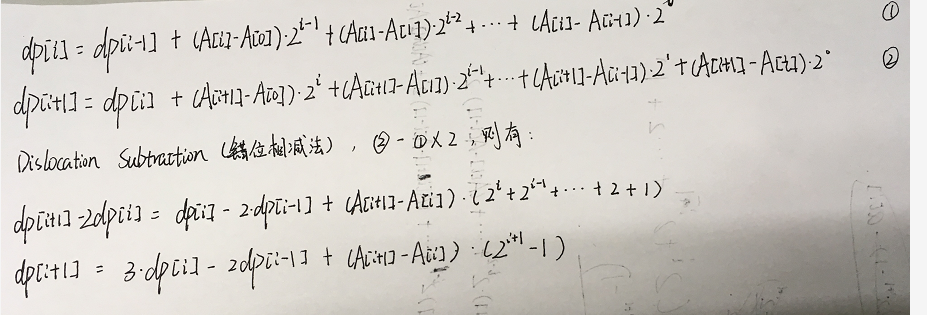 dp[i] = dp[i-1] + (A[i]-A[0])·2^{i-1} + (A[i]-A[1])·2^{i-2} + ··· + (A[i]-A[i-1])·2^0 ①
dp[i+1] = dp[i] + (A[i+1]-A[0])·2^i + (A[i+1]-A[1])·2^{i-1} + ··· + (A[i+1]-A[i-1])·2^1 + (A[i+1]-A[i])·2^0 ②
Dislocation Subtraction (错位相减法), ②-①×2, 则有:
dp[i+1]-2dp[i] = dp[i] - 2·dp[i-1] + (A[i+1]-A[i])·(2^i+2^{i-1}+···+2+1)
dp[i+1] = 3·dp[i] - 2dp[i-1] + (A[i+1]-A[i])·(2^{i+1}-1)